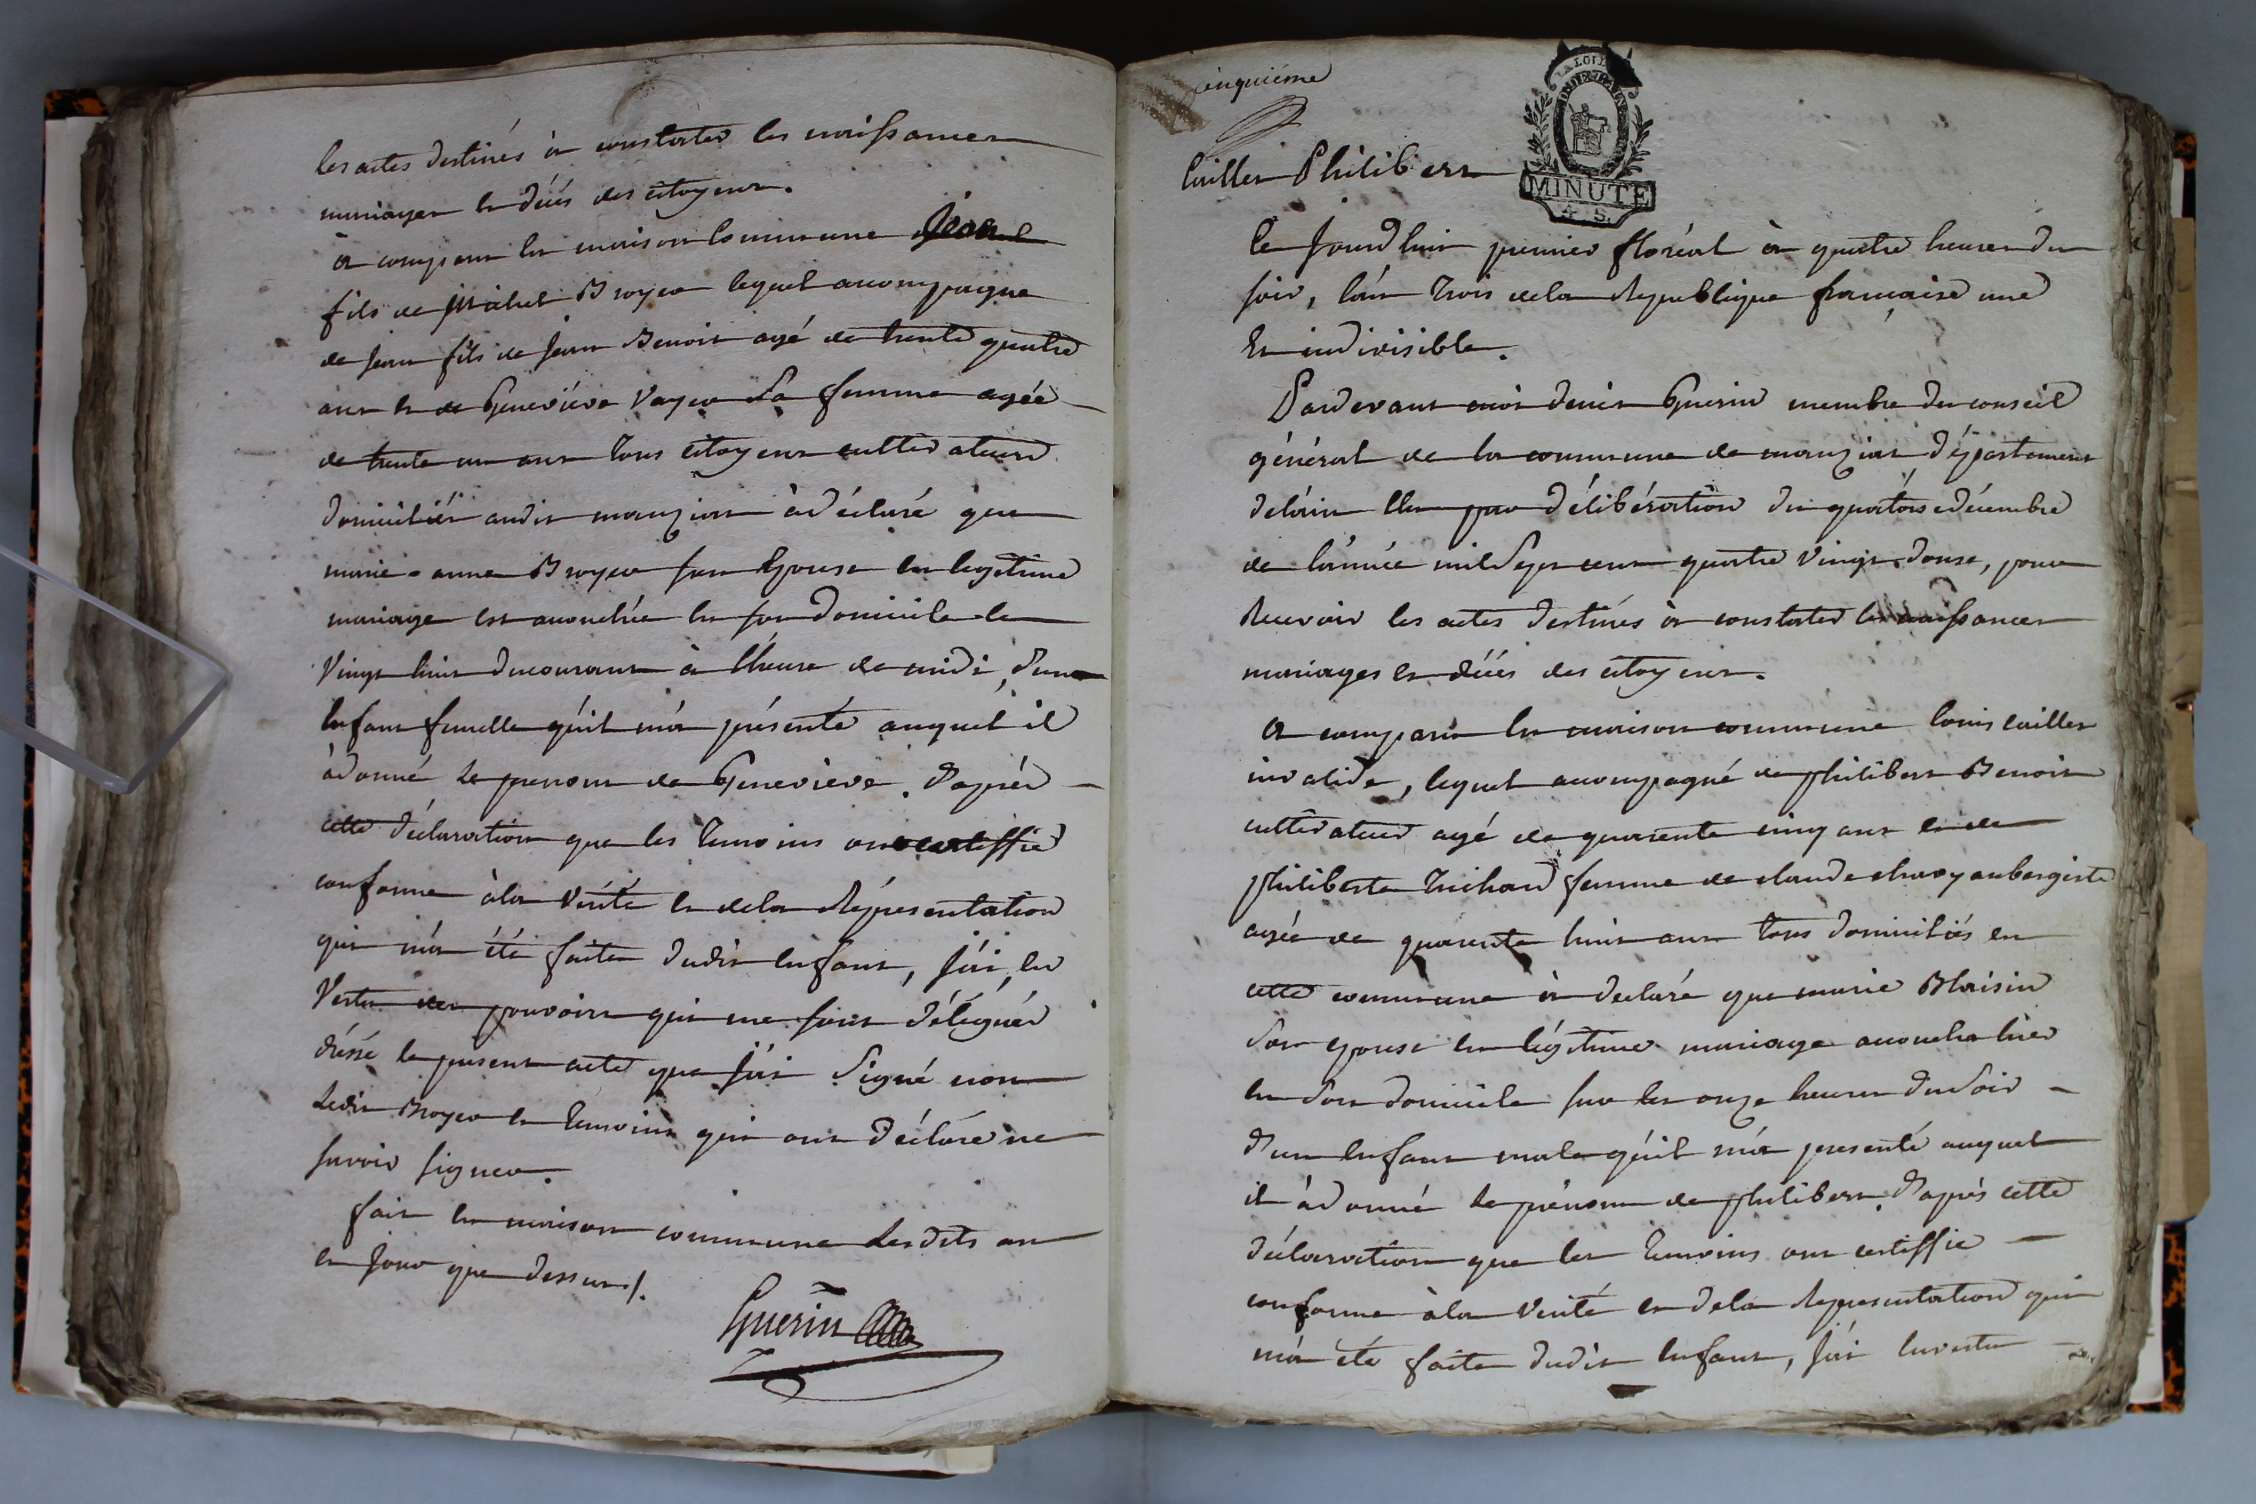 les actes destinés à constater les naissances
mariages et décès des citoyens.
a comparu en maison commune Jean
fils de Michel Broyer lequel accompagné
de Jean fils de Jean Benoit agé de trente quatre
ans et de Geneviève Vayer sa femme agée
de trente un ans tous citoyens cultivateurs
domiciliés audit manziat à déclaré que
marie-anne Broyer son Epouse en legitime
mariage est accouchée en son domicile le
Vingt huit du courant à l'heure de midi, d'un
Enfant femelle qu'il m'a présenté auquel il
à donné le prenom de Geneviève. D'après
cette déclaration que les temoins ont certiffié
conforme à la Vérité et de la Représentation
qui m'a été faite dudit Enfant, j'ai en
Vertu des pouvoirs qui me sont délégués
dréssé le present acte que j'ai signé non
ledit Broyer et temoins qui ont déclaré ne
savoir signer.
fait en maison commune lesdits an
et jour que dessus /.
Guerin
cinquième
Caillet Philibert
LA LOI
MINUTE
4 S.
Ce Jourd'hui premier floréal à quatre heures du
soir, l'an trois de la République française une
Et indivisible.
Pardevant moi denis Guerin membre du conseil
général de la commune de manziat, département
de l'ain Elu par délibération du quatorse décembre
de l'année mil Sept cent quatre Vingt douse, pour
Recevoir les actes destinés à constater les naissances
mariages et décès des citoyens.
a comparu en maison commune louis cailler
invalide, lequel accompagné de philibert Benoit
cultivateur agé de quarente cinq ans et de
philiberte Trichard femme de claude chavy aubergiste
agée de quarente huit ans tous domiciliés en
cette commune à declaré que marie Blaisin
son epouse en légitime mariage accoucha hier
en son domicile sur les onze heures du soir
d'un Enfant male qu'il m'a presenté auquel
il à donné le prénom de philibert. D'après cette
déclaration que les temoins ont certiffié
conforme à la Verité et de la Representation qui
m'a été faite dudit Enfant, j'ai En vertu